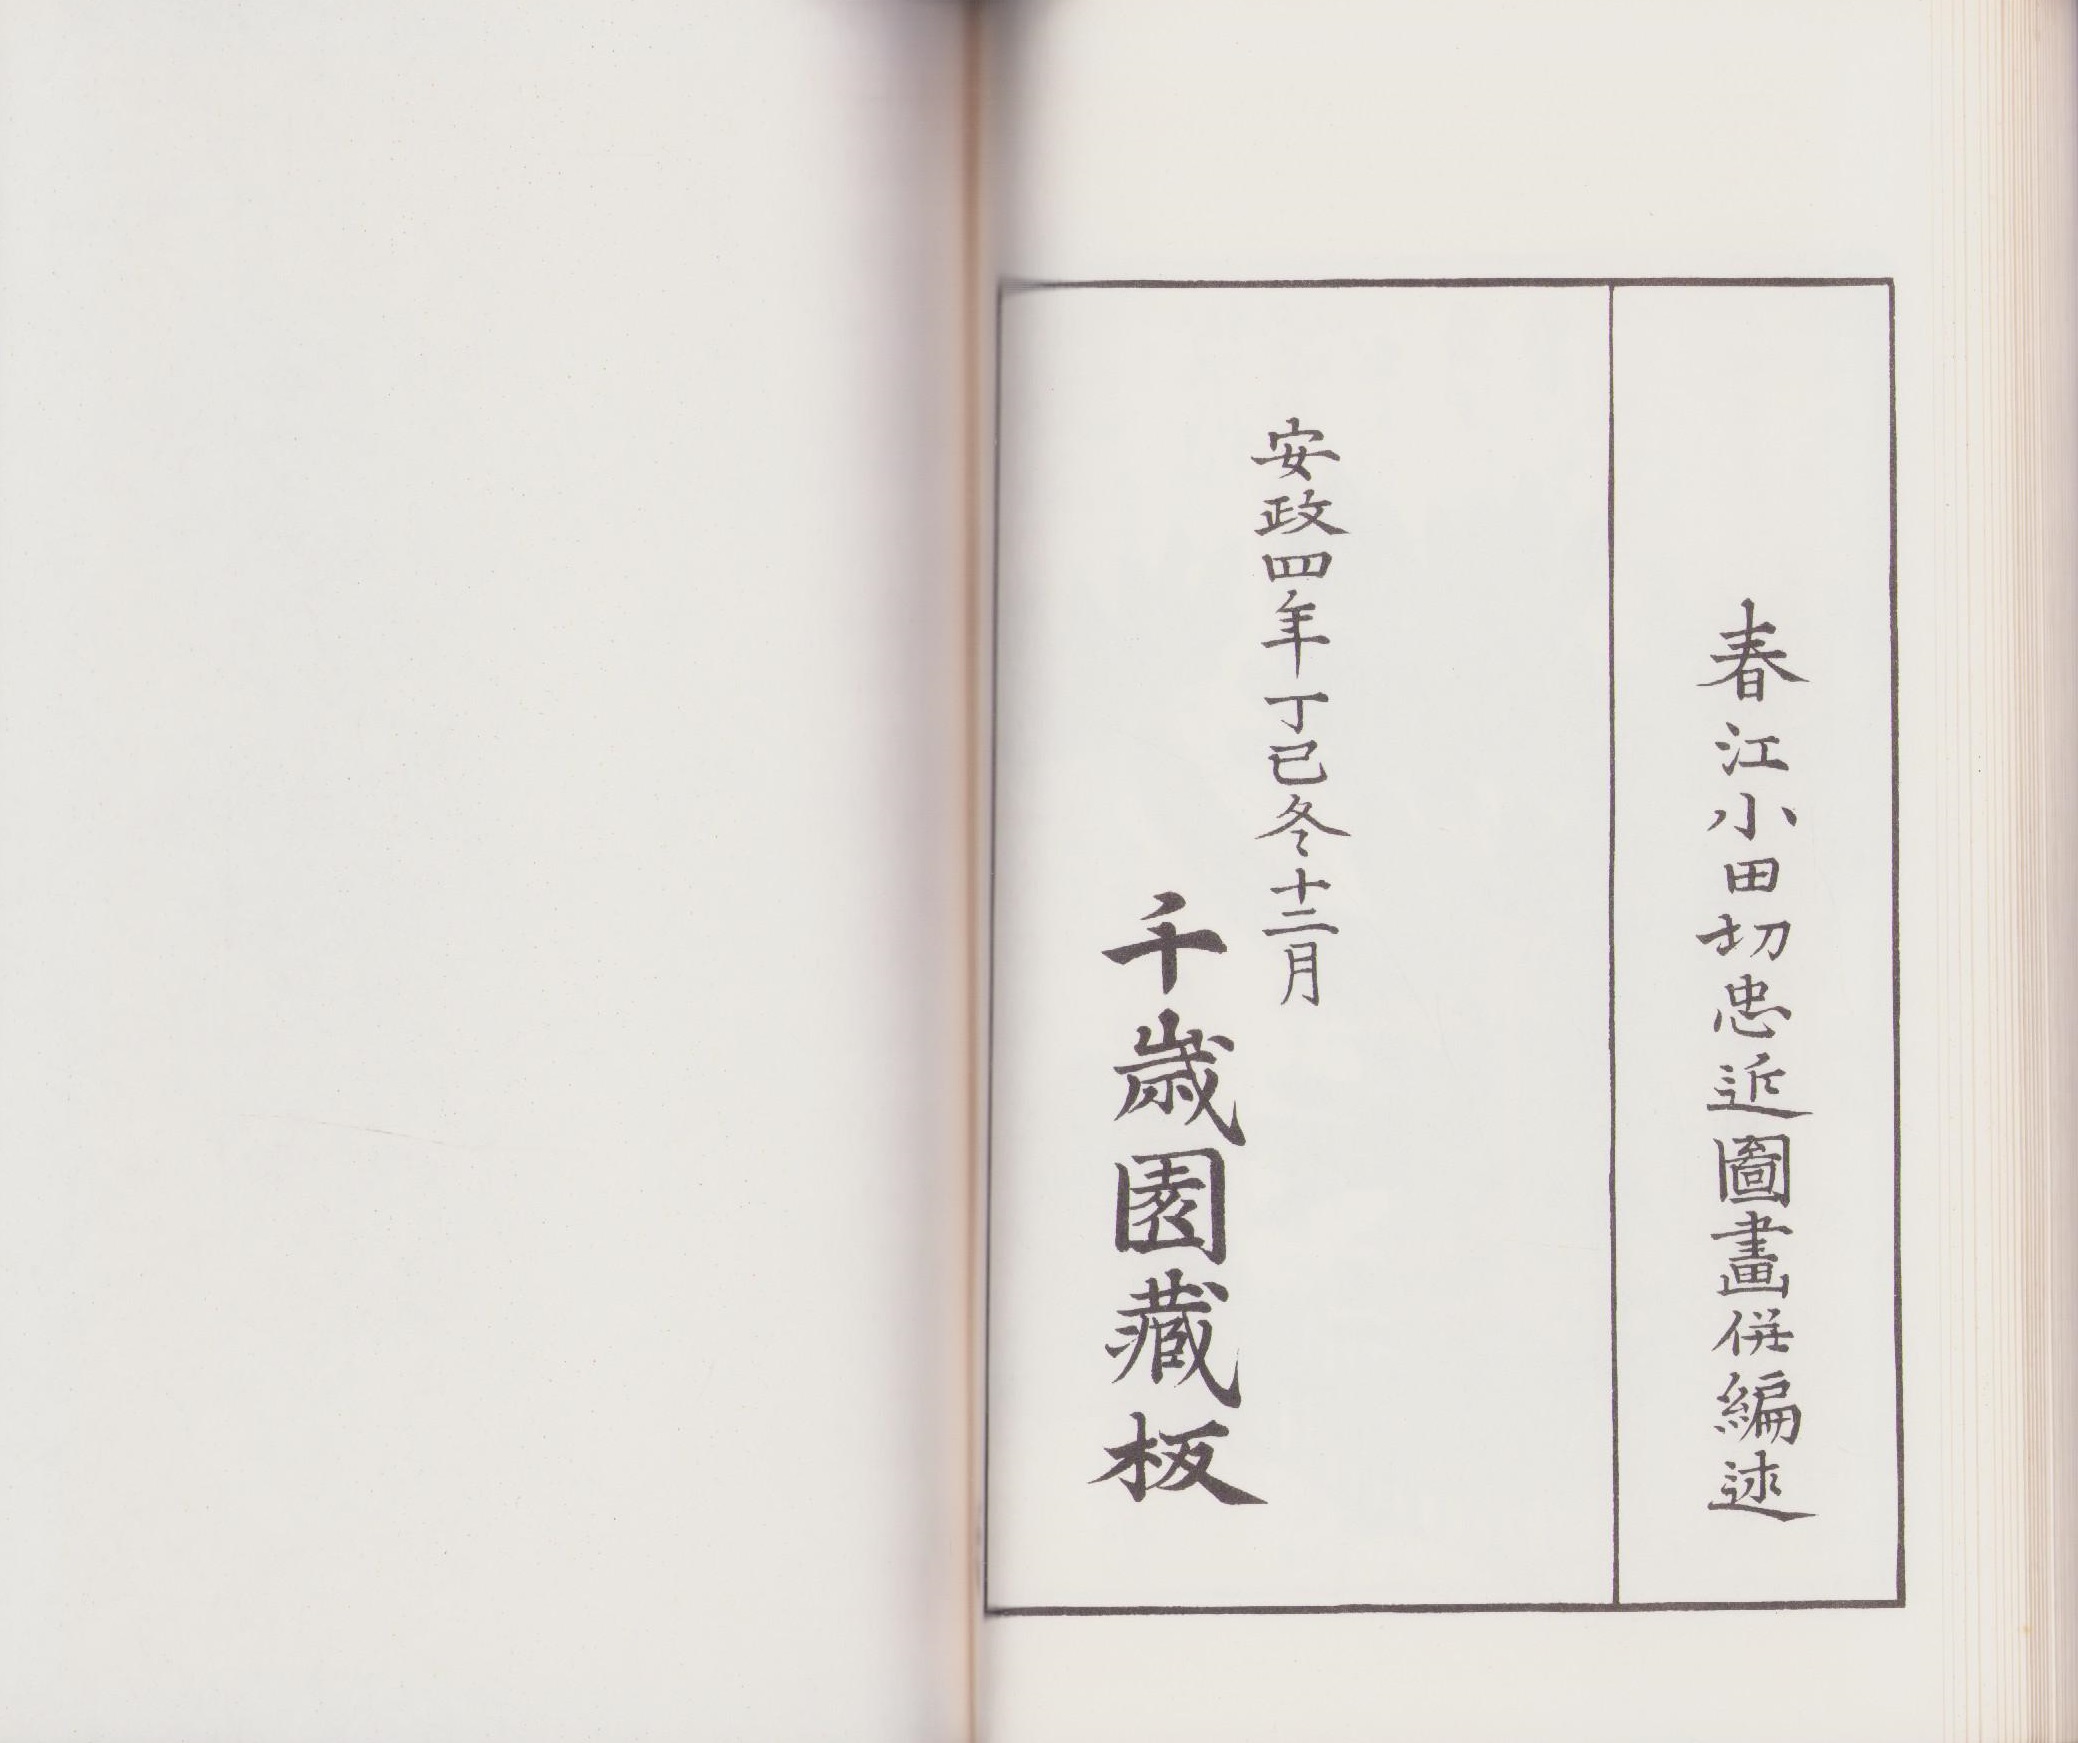 春江小田切忠近圖畫併編述
安政四年丁巳冬十二月
千歳園藏板